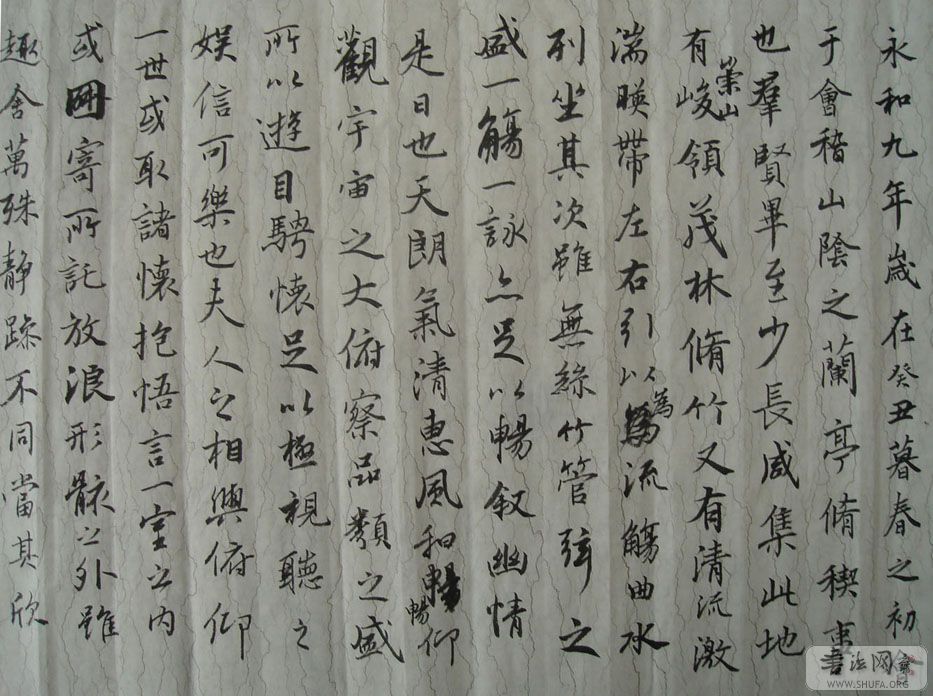 永和九年歲在癸丑暮春之初會
于會稽山陰之蘭亭脩稧事
也羣賢畢至少長咸集此地
有崇山峻領茂林脩竹又有清流激
湍暎帶左右引以為流觴曲水
列坐其次雖無絲竹管弦之
盛一觴一詠亦足以暢叙幽情
是日也天朗氣清惠風和暢仰
觀宇宙之大俯察品類之盛
所以遊目騁懷足以極視聽之
娛信可樂也夫人之相與俯仰
一世或取諸懷抱悟言一室之内
或因寄所託放浪形骸之外雖
趣舍萬殊靜躁不同當其欣
書法网
WWW.SHUFA.ORG